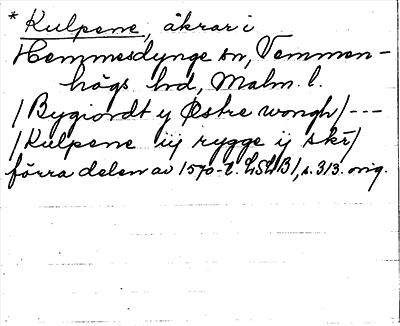 * Kulpene, åkrar i
Hemmesdynge sn, Vemmen-
högs hd, Malm. l.
/Bygiordt y Østre wongh/---
/Kulpene iij rygge ij skr/
förra delen av 1570-t. LSLB1, s. 313. orig.